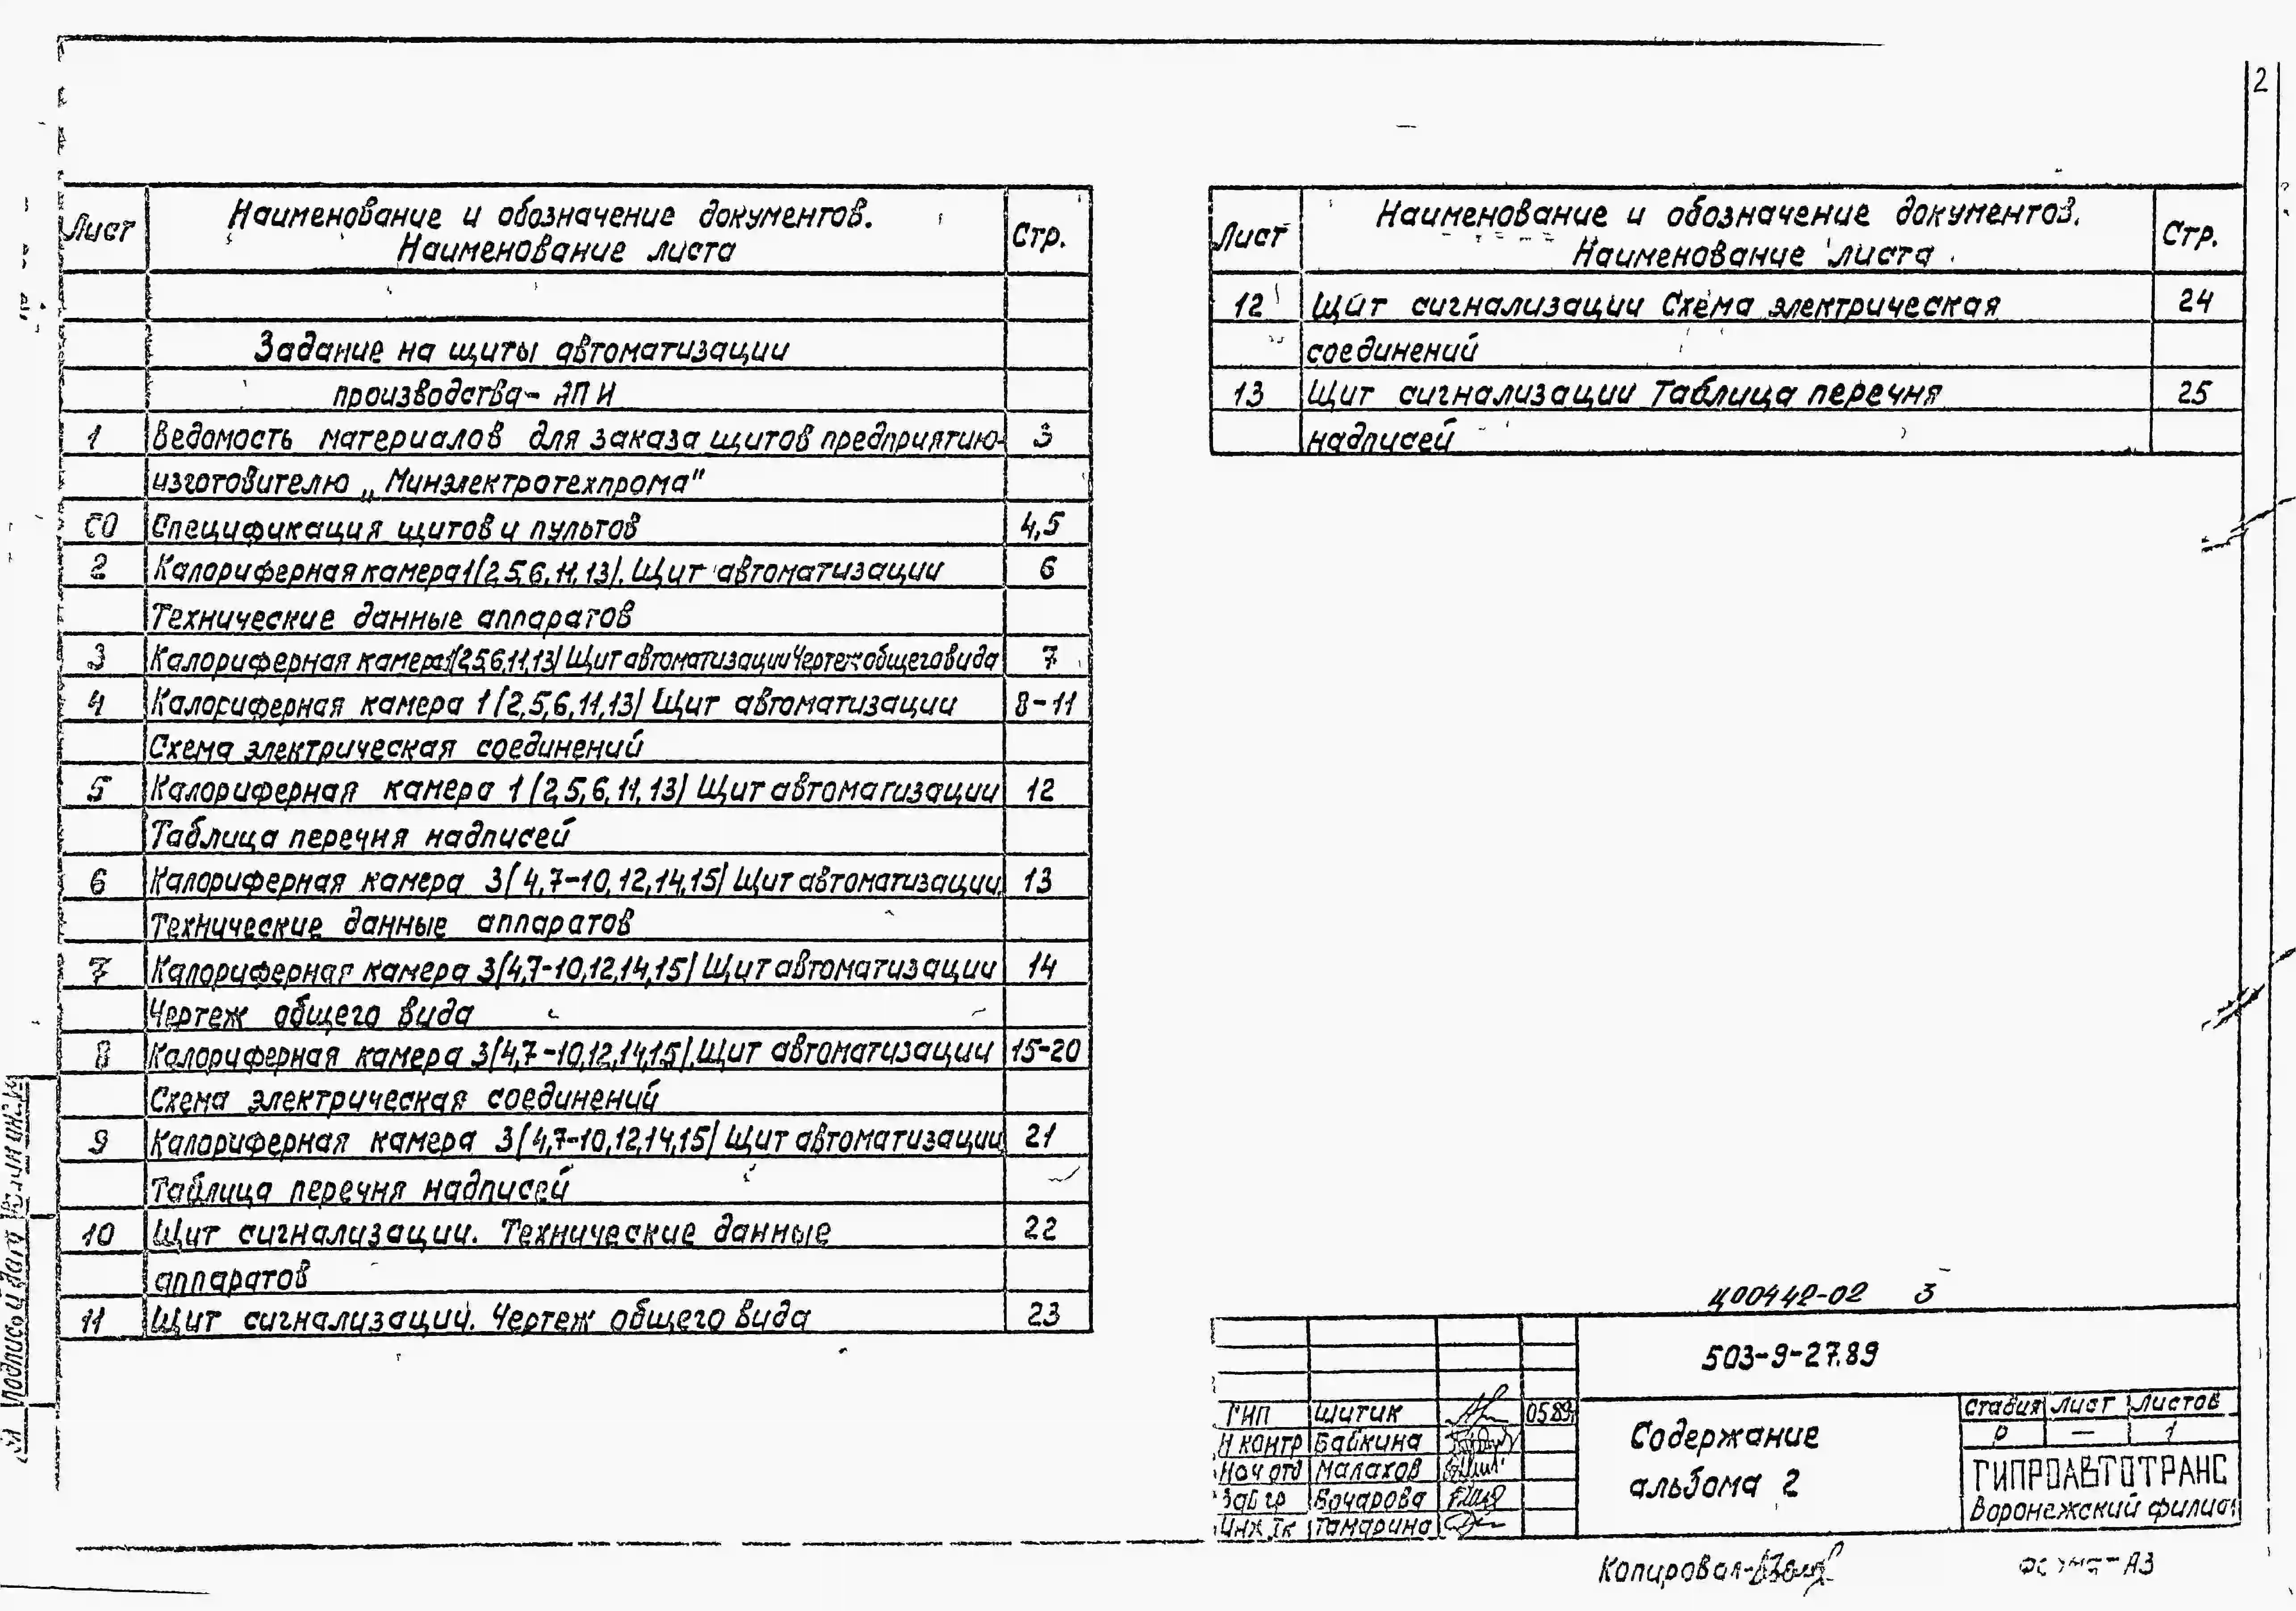 2
Лист Наименование и обозначение документов. Наименование листа Стр.
Задание на щиты автоматизации
производства- АПИ
1 Ведомость материалов для заказа щитов предприятию- 3
изготовителю „Минэлектротехпрома"
СО Спецификация щитов и пультов 4,5
2 Калориферная камера 1(2,5,6,11,13). Щит автоматизации 6
Технические данные аппаратов
3 Калориферная камера 1(2,5,6,11,13) Щит автоматизации Чертеж общего вида 7
4 Калориферная камера 1(2,5,6,11,13) Щит автоматизации 8-11
Схема электрическая соединений
5 Калориферная камера 1(2,5,6,11,13) Щит автоматизации 12
Таблица перечня надписей
6 Калориферная камера 3(4,7-10,12,14,15) Щит автоматизации 13
Технические данные аппаратов
7 Калориферная камера 3(4,7-10,12,14,15) Щит автоматизации 14
Чертеж общего вида
8 Калориферная камера 3(4,7-10,12,14,15). Щит автоматизации 15-20
Схема электрическая соединений
9 Калориферная камера 3(4,7-10,12,14,15) Щит автоматизации 21
Таблица перечня надписей
10 Щит сигнализации. Технические данные 22
аппаратов
11 Щит сигнализаций. Чертеж общего вида 23
Лист Наименование и обозначение документов. Наименование листа Стр.
12 Щит сигнализации Схема электрическая 24
соединений
13 Щит сигнализации Таблица перечня 25
надписей
Ц00442-02 3
503-9-27.89
ГИП Шитик 05.89г
Н контр Байкина
Нач отд Малахов
Зав гр Бочарова
Инж Iк Тамарина
Содержание
альбома 2
Стадия Лист Листов
Р — 1
ГИПРОАВТОТРАНС
Воронежский филиал
Копировал-
Формат А3
Подпись и дата